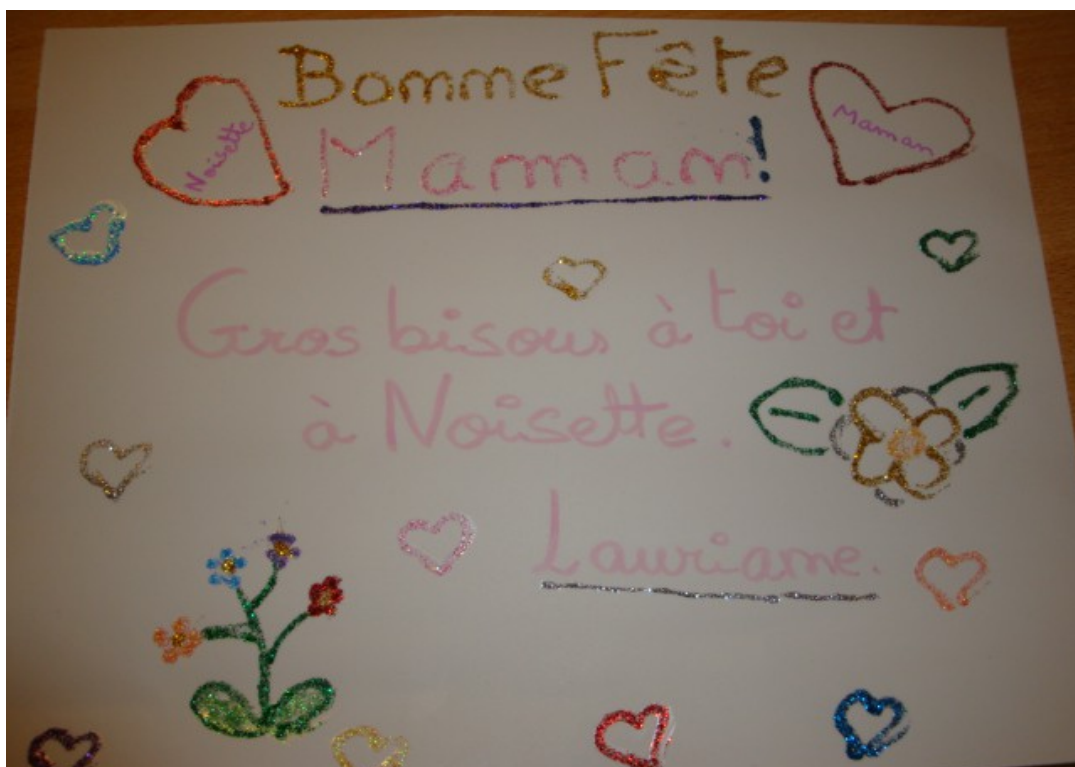 Bonne Fête
Noisette
Maman
Maman!
Gros bisous à toi et
à Noisette.
Lauriane.